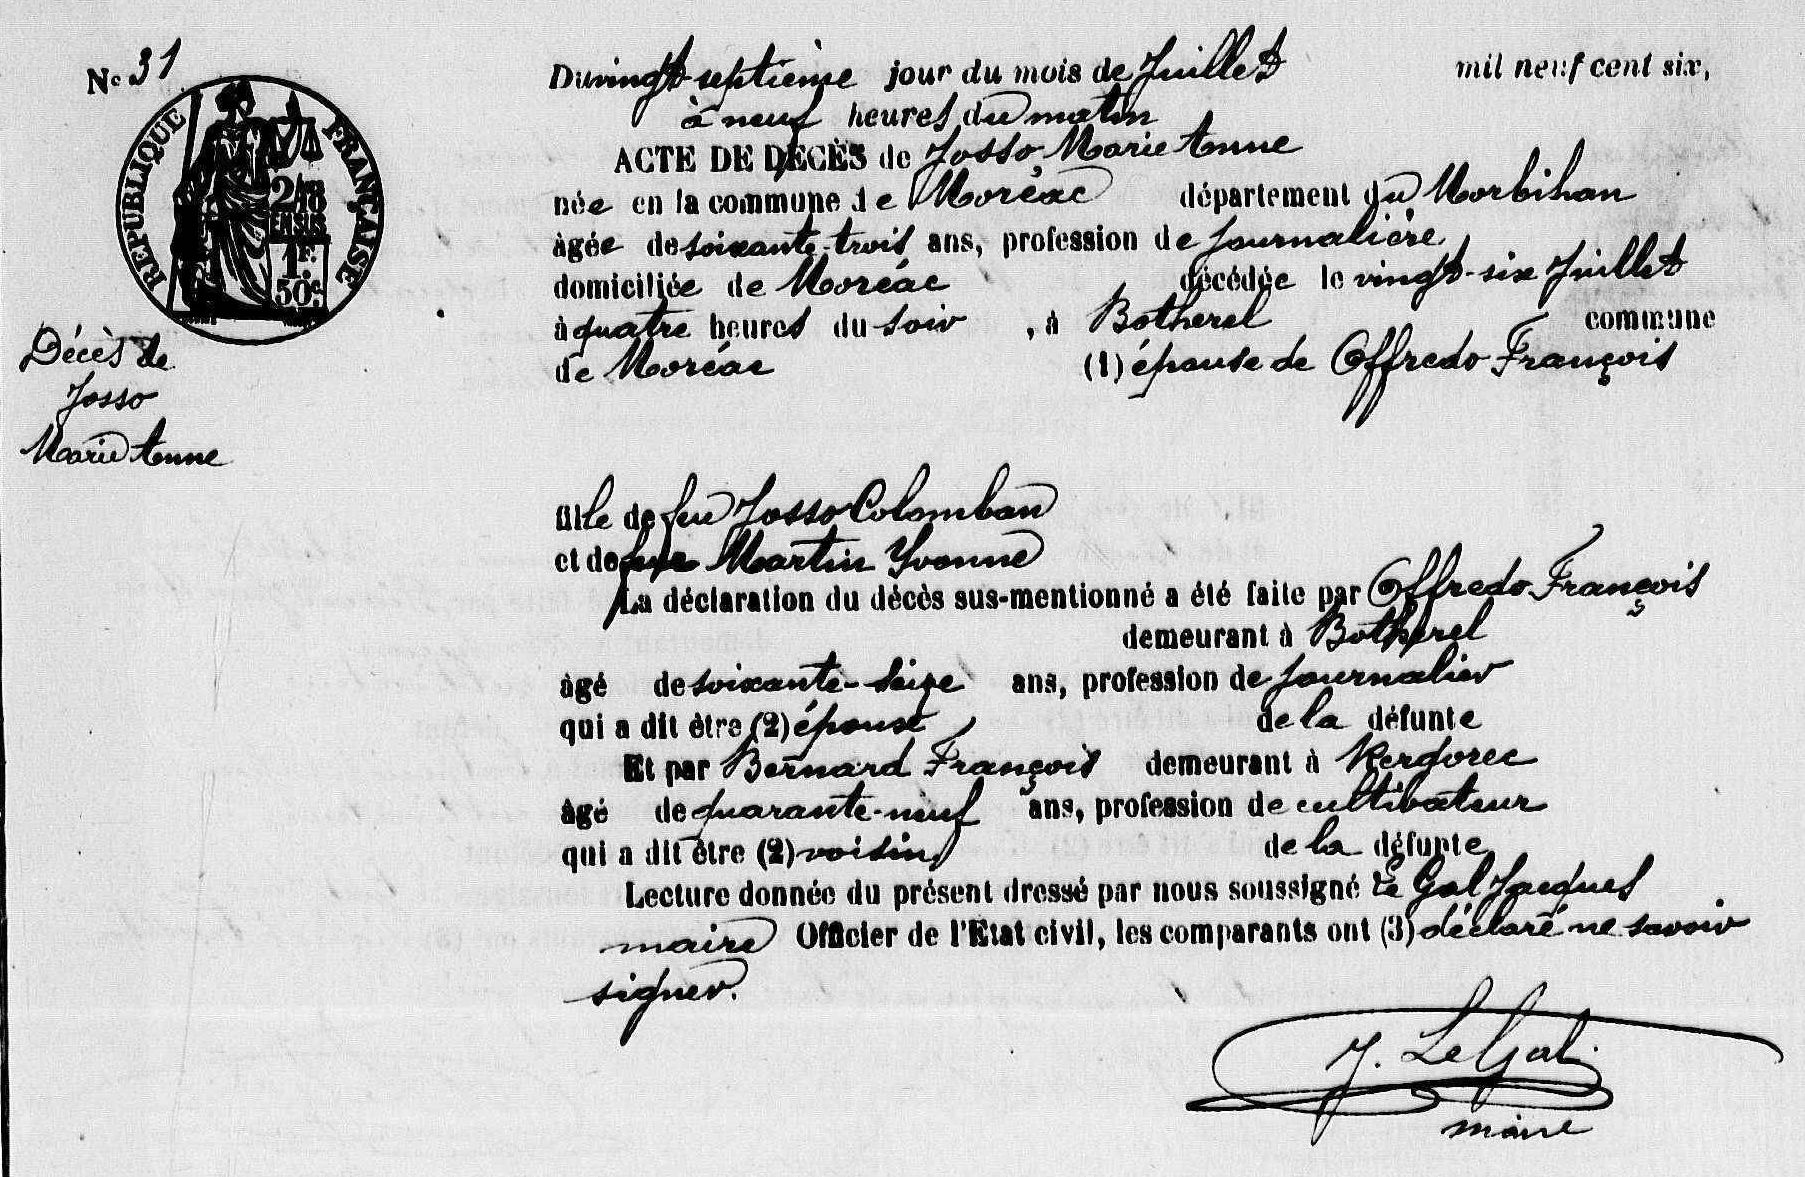 No 31
RÉPUBLIQUE FRANÇAISE
2/10
EN SUS
1F.
50c.
Décès de
Josso
Marie Anne
Du vingt septième jour du mois de Juillet mil neuf cent six,
à neuf heures du matin
ACTE DE DÉCÈS de Josso Marie Anne
née en la commune de Moréac département du Morbihan
âgée de soixante-trois ans, profession de journalière
domiciliée de Moréac décédée le vingt-six Juillet
à quatre heures du soir , à Botherel commune
de Moréac (1) épouse de Offredo François
fille de feu Josso Colomban
et de feue Martin Yvonne
La déclaration du décès sus-mentionné a été faite par Offredo François
demeurant à Botherel
âgé de soixante-seize ans, profession de journalier
qui a dit être (2) époux de la défunte
Et par Bernard François demeurant à Kergorec
âgé de quarante-neuf ans, profession de cultivateur
qui a dit être (2) voisin de la défunte
Lecture donnée du présent dressé par nous soussigné Le Gal Jacques
maire Officier de l'Etat civil, les comparants ont (3) déclaré ne savoir
signer.
J. Le Gal
maire